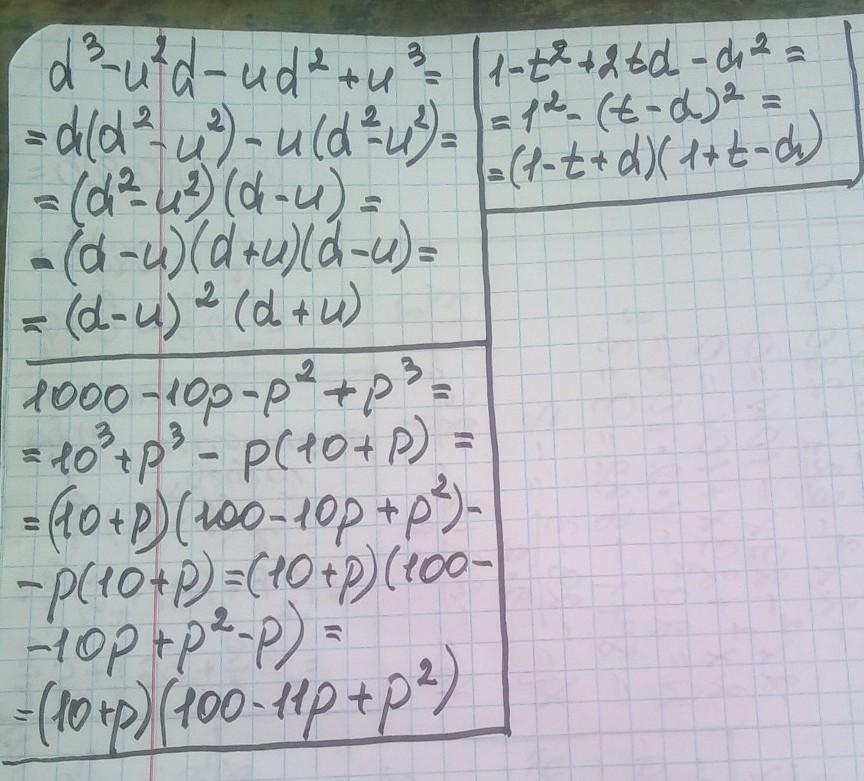 d³-u²d-ud²+u³=
=d(d²-u²)-u(d²-u²)=
=(d²-u²)(d-u)=
=(d-u)(d+u)(d-u)=
=(d-u)²(d+u)
1000-10p-p²+p³=
=10³+p³-p(10+p)=
=(10+p)(100-10p+p²)-
-p(10+p)=(10+p)(100-
-10p+p²-p)=
=(10+p)(100-11p+p²)
1-t²+2td-d²=
=1²-(t-d)²=
=(1-t+d)(1+t-d)